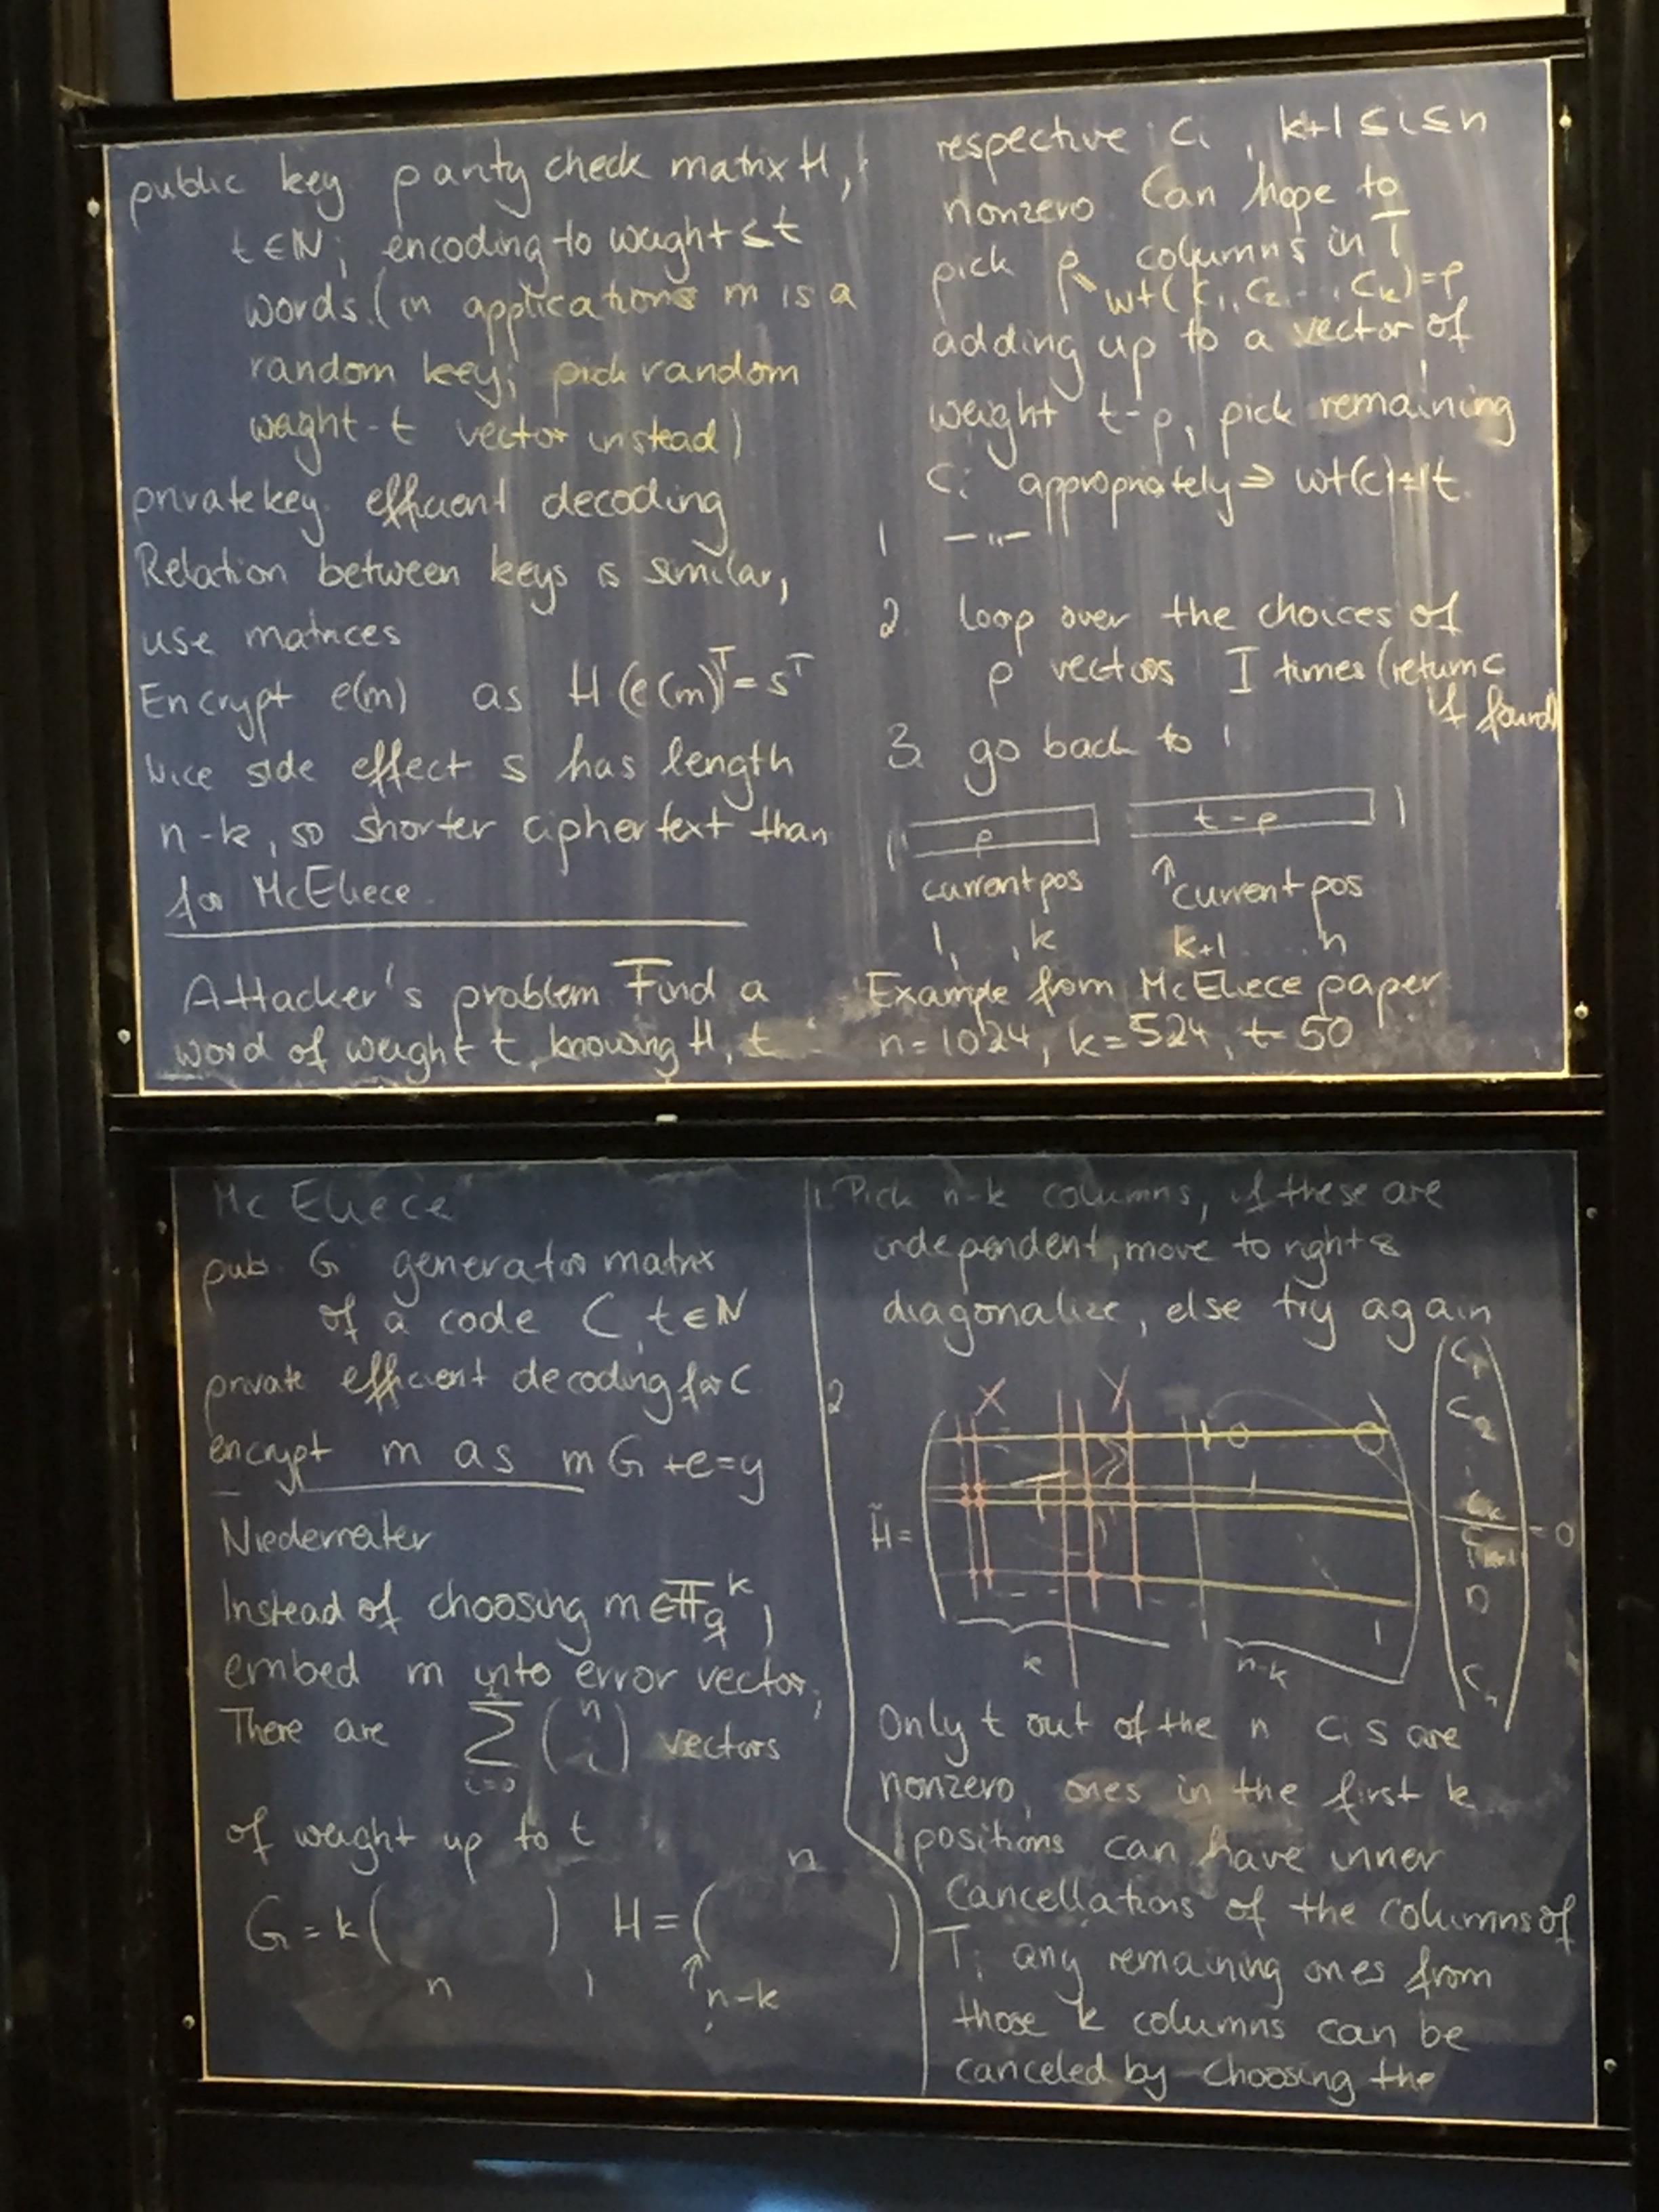 Mc Eliece
pub. G generator matrix
of a code C, t ∈ N
private efficient decoding for C
encrypt m as mG + e = y
Niederreiter
Instead of choosing m ∈ F_q^k,
embed m into error vector,
There are Σ_{i=0} (n i) vectors
of weight up to t
G = k ( ) H = ( )
n
n
n-k
public key parity check matrix H,
t ∈ N; encoding to weight ≤ t
words. (in applications m is a
random key; pick random
weight-t vector instead)
private key efficient decoding
Relation between keys is similar,
use matrices
Encrypt e(m) as H (e(m))^T = s^T
Nice side effect s has length
n-k, so shorter ciphertext than
for McEliece.
Attacker's problem Find a
word of weight t, knowing H, t
1. Pick n-k columns, if these are
independent, move to right &
diagonalize, else try again
2
X Y
H̃ =
C1
C2
Ck
Cn
= 0
k n-k
Only t out of the n Ci s are
nonzero, ones in the first k
positions can have inner
Cancellations of the columns of
T; any remaining ones from
those k columns can be
canceled by choosing the
respective Ci, k+1 ≤ i ≤ n
nonzero Can hope to
pick p columns in T
wt(C1, C2, .., Ck) = p
adding up to a vector of
weight t-p, pick remaining
Ci appropriately ⇒ wt(c) = t.
1 —"—
2. loop over the choices of
p vectors I times (return c
if found)
3. go back to 1
( p t-p )
current pos current pos
1, .., k k+1 .... n
Example from McEliece paper
n = 1024, k = 524, t = 50